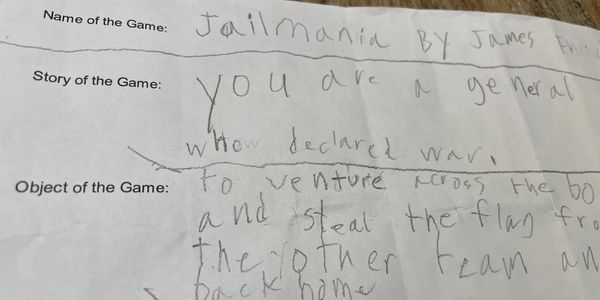 Name of the Game: Jailmania By James
Story of the Game: you are a general
whow declared war.
Object of the Game: to venture across the bo
and steal the flag fro
the other team an
back home